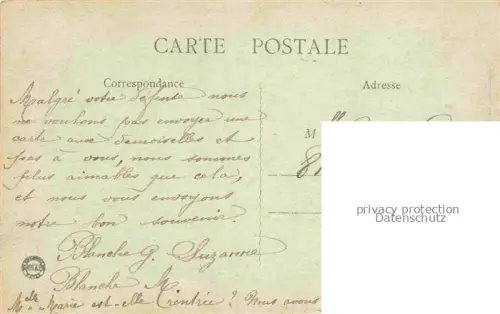 CARTE POSTALE
Correspondance
Adresse
Malgré votre défense nous
ne voulons pas envoyer une
carte aux demoiselles et
pas à vous, nous sommes
plus aimables que cela,
et nous vous envoyons
notre bon souvenir.
Blanche G. Suzanne
Blanche M.
Melle Marie est-elle rentrée ? Nous avons
M
privacy protection
Datenschutz